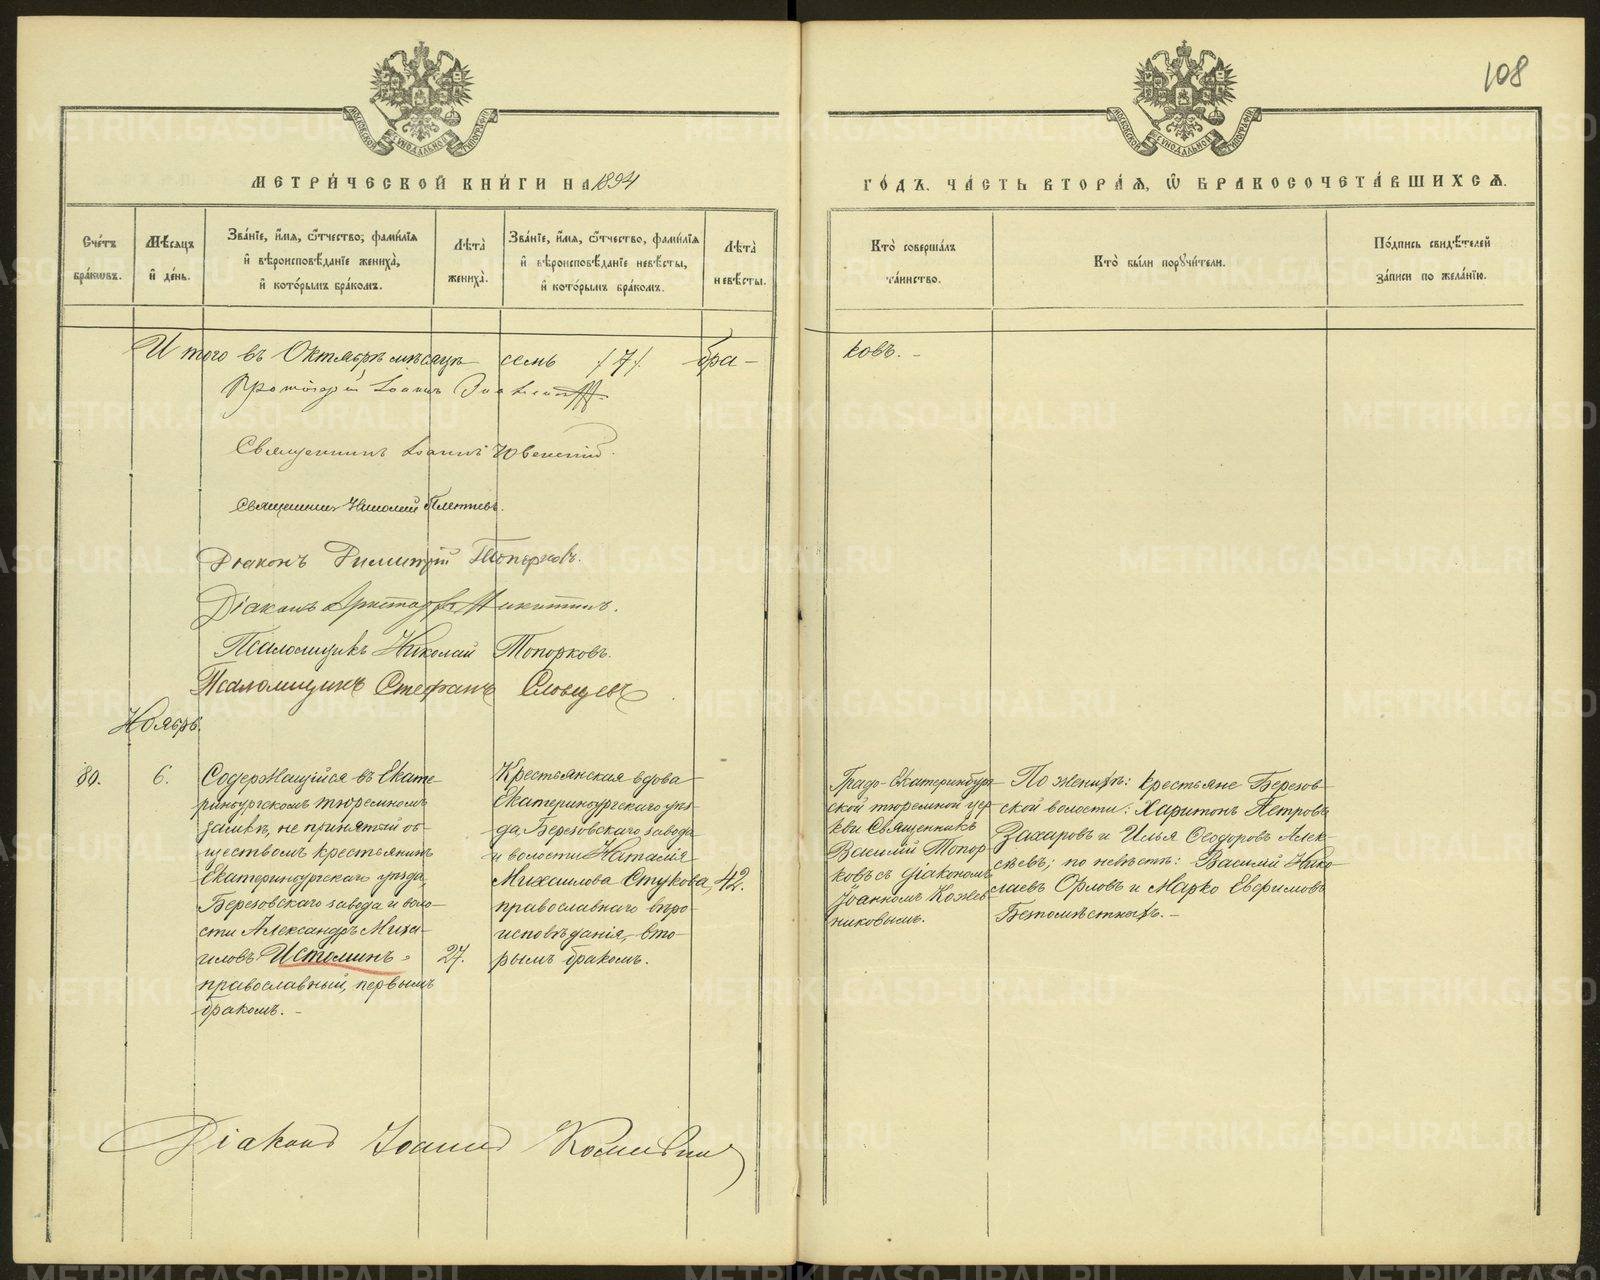 108
МЕТРИ́ЧЕСКОЙ КНИ́ГИ НА 1894
ГО́ДЪ. ЧА́СТЬ ВТОРА́Я, Ѿ БРАКОСОЧЕТА́ВШИХСЯ.
Сче́тъ
бра́ковъ.
Мѣ́сяцъ
и҆ де́нь.
Зва́нїе, и҆́мя, ѻ҆́тчество, фами́лїя
и҆ вѣроисповѣ́данїе жениха̀,
и҆ кото́рымъ бра́комъ.
Лѣта̀
жениха̀.
Зва́нїе, и҆́мя, ѻ҆́тчество, фами́лїя
и҆ вѣроисповѣ́данїе невѣ́сты,
и҆ кото́рымъ бра́комъ.
Лѣта̀
невѣ́сты.
Кто̀ соверша́лъ
та́инство.
Кто̀ бы́ли порꙋчи́тели.
По́дпись свидѣ́телей
за́писи по жела́нїю.
Итого въ Октябрѣ мѣсяцѣ семь /7/ бра-
ковъ. -
Протоіерей Іоаннъ
Священникъ Іоаннъ
Священникъ Николай Плетневъ.
Діаконъ Димитрій Топорковъ.
Діаконъ Аристархъ Никитинъ.
Псаломщикъ Николай Топорковъ.
Псаломщикъ Стефанъ Словцевъ
Ноябрь.
80.
6.
Содержащійся въ Екате
ринбургскомъ тюремномъ
замкѣ, не принятый об-
ществомъ крестьянинъ
Екатеринбургскаго уѣзда,
Березовскаго завода и воло-
сти Александръ Миха-
иловъ Истоминъ
православный, первымъ
бракомъ. -
27.
Крестьянская вдова
Екатеринбургскаго уѣз-
да Березовскаго завода
и волости Наталія
Михаилова Стукова,
православнаго вѣро-
исповѣданія, вто-
рымъ бракомъ.
42.
Градо-Екатеринбург
ской тюремной цер
кви Священникъ
Василій Топор-
ковъ съ діакономъ
Іоанномъ Кожев-
никовымъ.
По женихѣ: крестьяне Березов-
ской волости: Харитонъ Петровъ
Захаровъ и Илья Ѳеодоровъ Алек-
сѣевъ; по невѣстѣ: Василій Нико
лаевъ Орловъ и Марко Евфимовъ
Безпомѣстныхъ. -
Діаконъ Іоаннъ
METRIKI.GASO-URAL.RU